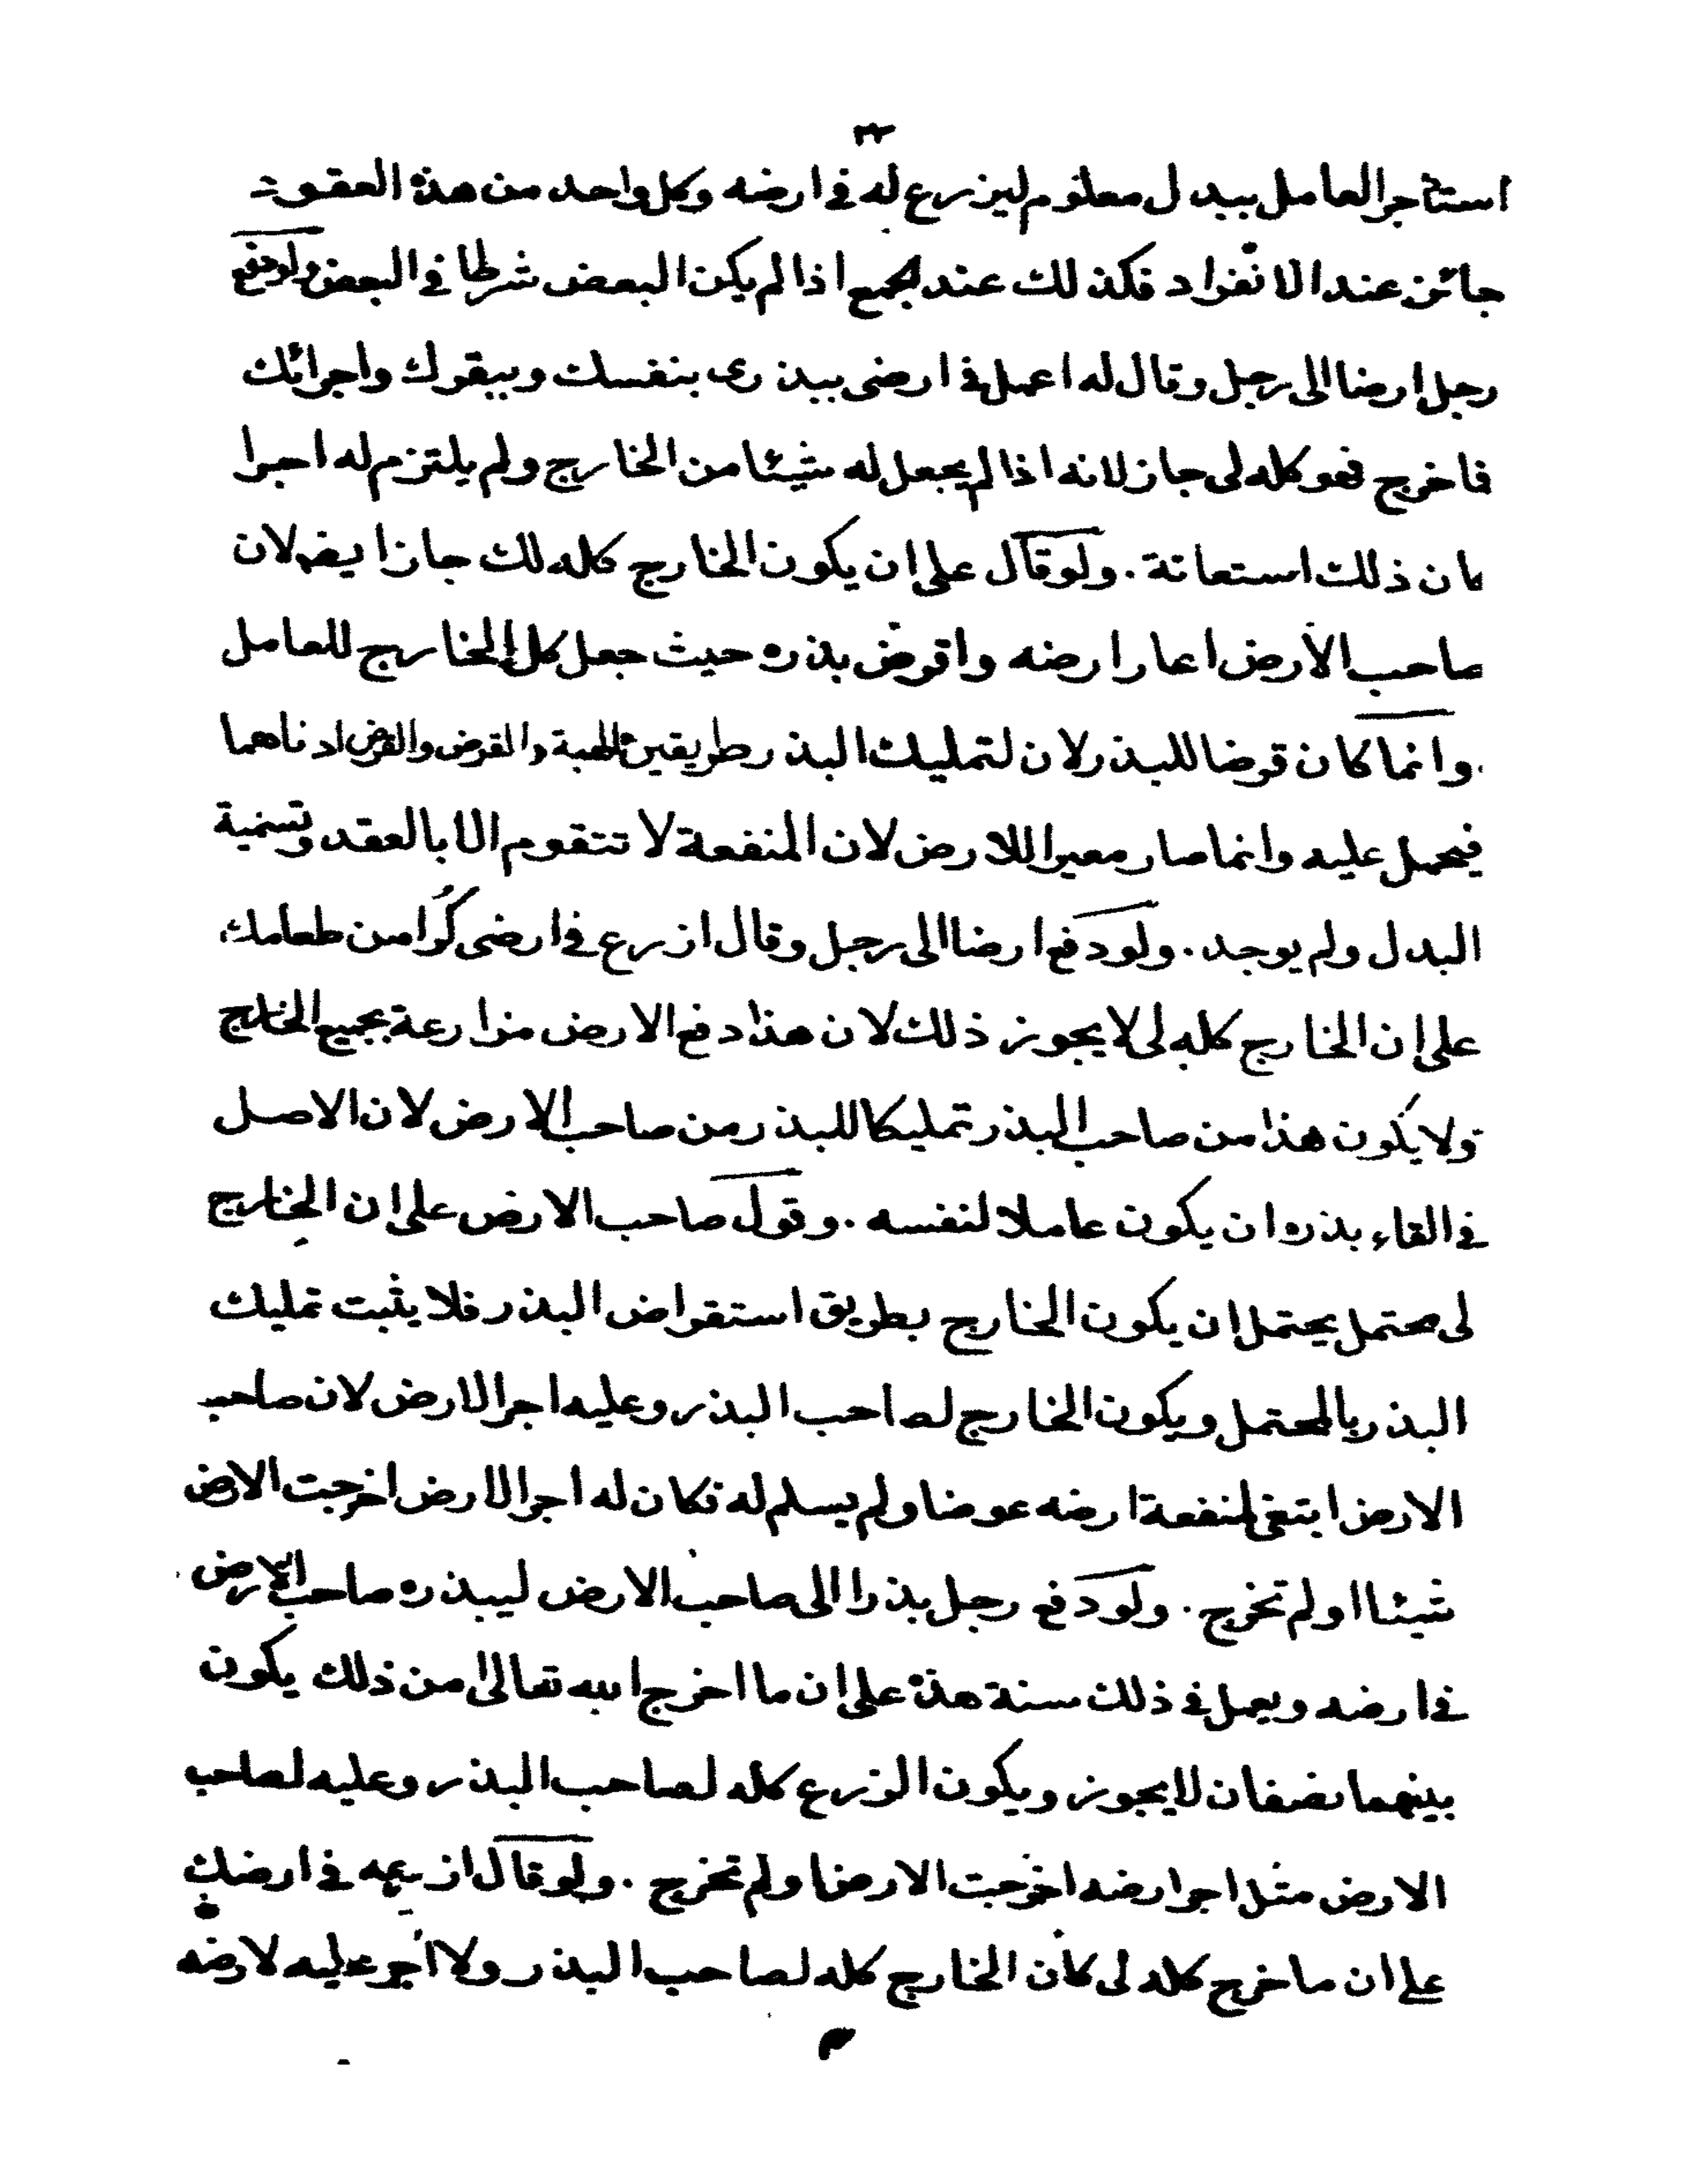 ٣٢
استأجر العامل ببدل معلوم ليزرع له في ارضه وكل واحد من هذه العقود
جائز عند الانفراد فكذلك عند الجمع اذا لم يكن البعض شرطا في البعض ولو دفع
رجل ارضا الى رجل وقال له اعمل في ارضى ببذرى بنفسك وببقرك واجرائك
فاخرج فهو كله لى جاز لانه اذا لم يجعل له شيئا من الخارج ولم يلتزم له اجرا
كان ذلك استعانة . ولو قال على ان يكون الخارج كله لك جاز ايضا لان
صاحب الارض اعار ارضه واقرض بذره حيث جعل كل الخارج للعامل
وانما كان قرضا للبذر لان لتمليك البذر طريقين الهبة والقرض والقرض ادناهما
فيحمل عليه وانما صار معيرا للارض لان المنفعة لا تتقوم الا بالعقد وتسمية
البدل ولم يوجد . ولو دفع ارضا الى رجل وقال ازرع في ارضى كرا من طعامك
على ان الخارج كله لى لا يجوز ذلك لان هذا دفع الارض مزارعة بجميع الخارج
ولا يكون هذا من صاحب البذر تمليكا للبذر من صاحب الارض لان الاصل
في القاء بذره ان يكون عاملا لنفسه . وقول صاحب الارض على ان الخارج
لى محتمل يحتمل ان يكون الخارج بطريق استقراض البذر فلا يثبت تمليك
البذر بالمحتمل ويكون الخارج لصاحب البذر وعليه اجر الارض لان صاحب
الارض ابتغى لمنفعة ارضه عوضا ولم يسلم له فكان له اجر الارض اخرجت الارض
شيئا او لم تخرج . ولو دفع رجل بذرا الى صاحب الارض ليبذره صاحب الارض
في ارضه ويعمل في ذلك سنة هذه على ان ما اخرج الله تعالى من ذلك يكون
بينهما نصفان لا يجوز ويكون الزرع كله لصاحب البذر وعليه لصاحب
الارض مثل اجر ارضه اخرجت الارض او لم تخرج . ولو قال ازرعه في ارضك
على ان ما خرج كله لى كان الخارج كله لصاحب البذر ولا اجر عليه لارضه